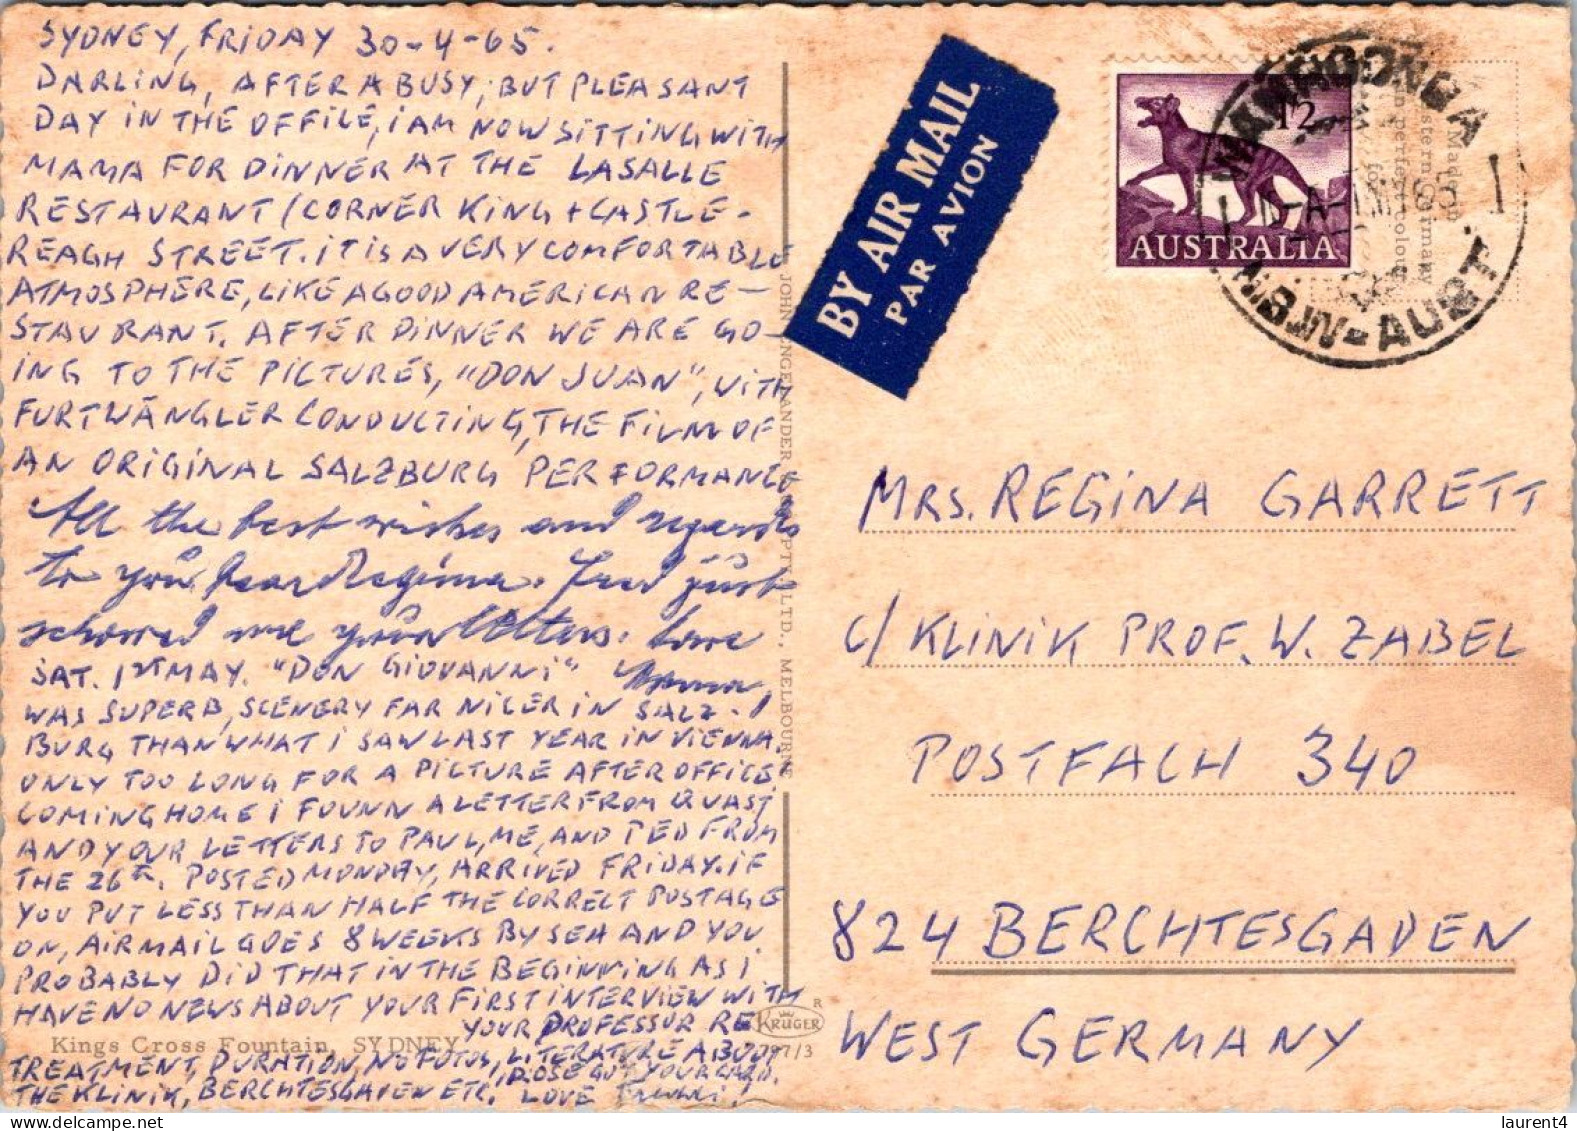 SYDNEY, FRIDAY 30-4-65.
DARLING, AFTER A BUSY, BUT PLEASANT
DAY IN THE OFFICE, I AM NOW SITTING WITH
MAMA FOR DINNER AT THE LASALLE
RESTAURANT (CORNER KING + CASTLE-
REAGH STREET. IT IS A VERY COMFORTABLE
ATMOSPHERE, LIKE A GOOD AMERICAN RE-
STAURANT. AFTER DINNER WE ARE GO-
ING TO THE PICTURES, "DON JUAN", WITH
FURTWÄNGLER CONDUCTING, THE FILM OF
AN ORIGINAL SALZBURG PERFORMANCE
All the best wishes and regards
to you dear Regina. Fred just
showed me your letters. Love
SAT. 1ST MAY. "DON GIOVANNI" Mama
WAS SUPERB, SCENERY FAR NICER IN SALZ-
BURG THAN WHAT I SAW LAST YEAR IN VIENNA,
ONLY TOO LONG FOR A PICTURE AFTER OFFICE.
COMING HOME I FOUNN A LETTER FROM QUAST
AND YOUR LETTERS TO PAUL, ME, AND TED FROM
THE 26th. POSTED MONDAY, ARRIVED FRIDAY. IF
YOU PUT LESS THAN HALF THE CORRECT POSTAGE
ON, AIRMAIL GOES 8 WEEKS BY SEA AND YOU
PROBABLY DID THAT IN THE BEGINNING AS I
HAVE NO NEWS ABOUT YOUR FIRST INTERVIEW WITH
YOUR PROFESSOR RE
TREATMENT, DURATION, NO FOTOS, LITERATURE ABOUT
THE KLINIK, BERCHTESGADEN ETC. ROSE GOT YOUR CARD.
LOVE
Kings Cross Fountain, SYDNEY
PTY. LTD., MELBOURNE
KRÜGER
R
797/3
BY AIR MAIL
PAR AVION
1/2
AUSTRALIA
N.S.W-AUST
Made in
Western Germany
MRS. REGINA GARRETT
C/ KLINIK PROF. W. ZABEL
POSTFACH 340
824 BERCHTESGADEN
WEST GERMANY
laurent4